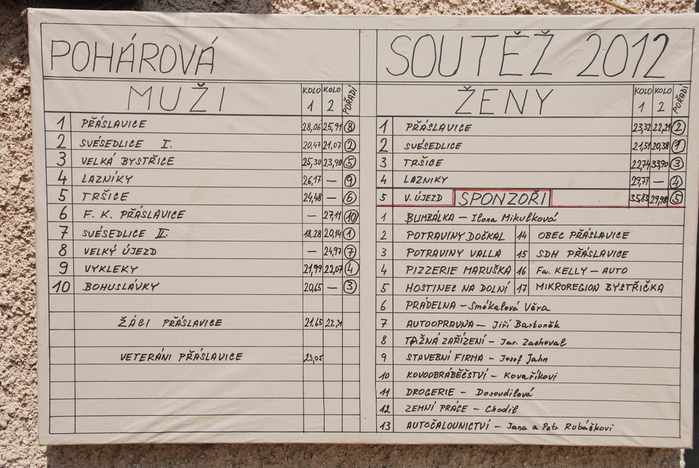 POHÁROVÁ SOUTĚŽ 2012
MUŽI KOLO 1 KOLO 2 POŘADÍ
1 PŘÁSLAVICE 28,06 25,91 8
2 SVÉSEDLICE I. 20,47 21,07 2
3 VELKÁ BYSTŘICE 25,30 23,90 5
4 LAZNÍKY 26,17 — 9
5 TRŠICE 24,48 — 6
6 F. K. PŘÁSLAVICE — 27,11 10
7 SVÉSEDLICE II. 18,28 20,14 1
8 VELKÝ ÚJEZD — 24,97 7
9 VYKLEKY 21,99 22,07 4
10 BOHUSLÁVKY 20,65 — 3
ŽÁCI PŘÁSLAVICE 21.65
VETERÁNI PŘÁSLAVICE
ŽENY KOLO 1 KOLO 2 POŘADÍ
1 PŘÁSLAVICE 23,32 22,21 2
2 SVÉSEDLICE 21,51 20,38 1
3 TRŠICE 22,74 33,90 3
4 LAZNIKY 29,77 — 4
5 V. ÚJEZD 35,82 29,98 5
SPONZOŘI
1 BUMBÁLKA – Ilona Mikulková
2 POTRAVINY DOČKAL 14 OBEC PŘÁSLAVICE
3 POTRAVINY VALLA 15 SDH PŘÁSLAVICE
4 PIZZERIE MARUŠKA 16 Fa. KELLY – AUTO
5 HOSTINEC NA DOLNÍ 17 MIKROREGION BYSTŘIČKA
6 PRÁDELNA – Smékalová Věra
7 AUTOOPRAVNA – Jiří Bartoněk
8 TAŽNÁ ZAŘÍZENÍ – Jar. Zachoval
9 STAVEBNÍ FIRMA – Josef Jahn
10 KOVOOBRÁBĚČSTVÍ – Kovaříkovi
11 DROGERIE – Dosoudilová
12 ZEMNÍ PRÁCE – Chodil
13 AUTOČALOUNICTVÍ – Jana a Petr Rubáčkovi